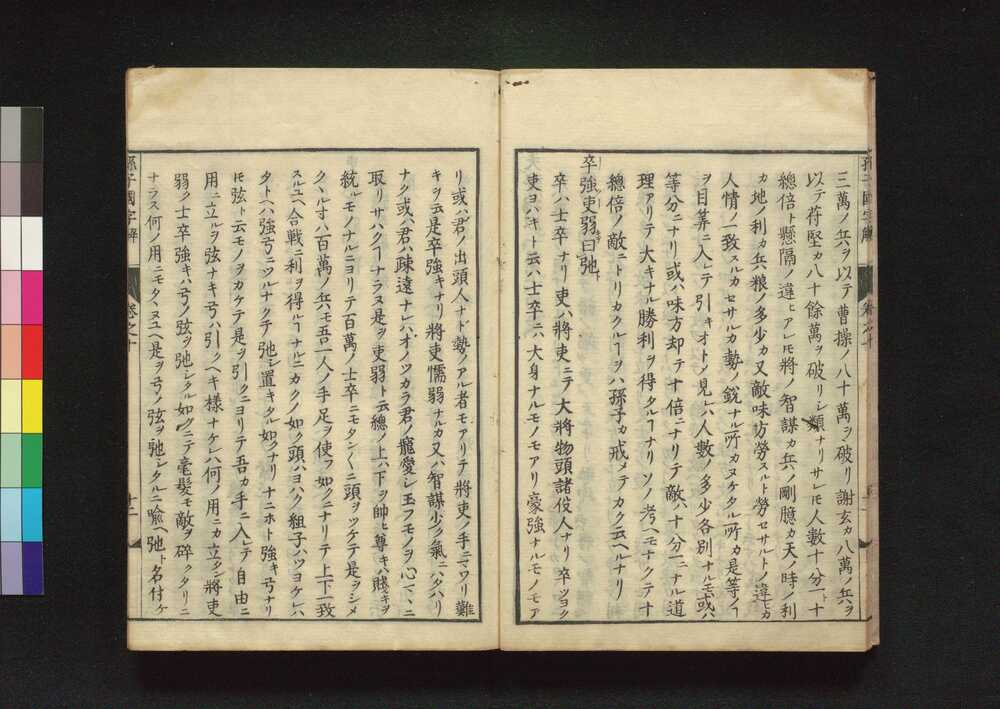 三萬ノ兵ヲ以テ曹操ノ八十萬ヲ破リ謝玄カ八萬ノ兵ヲ
以テ苻堅カ八十餘萬ヲ破リシ類ナリサレモ人數十分一ト十
總倍ト懸隔ノ違ヒアレモ將ノ智謀カ兵ノ剛臆カ天ノ時ノ利
カ地ノ利カ兵粮ノ多少カ又敵味方勞スルト勞セサルトノ違ヒカ
人情ノ一致スルカセサルカ勢ノ銳ナル所カヌケタル所カ是等ノイ
ヲ目筭ニ入レテ引キオトメ見レハ人數ノ多少各別ナルモ或ハ
等分ニナリ或ハ味方却テ十倍ニナリテ敵ハ十分一ニナル道
理アリテ大キナル勝利ヲ得タルヿナリソノ考ヘモナクテ十
總倍ノ敵ニトリカクルヿヲハ孫子カ戒メテカク云ヘルナリ
卒強吏弱曰弛
卒ハ士卒ナリ吏ハ將吏ニテ大將物頭諸役人ナリ卒ツヨク
吏ヨハキト云ハ士卒ニハ大身ナルモノモアリ豪強ナルモノモア
リ或ハ君ノ出頭人ナド勢ノアル者モアリテ將吏ノ手ニマワリ難
キヲ云是卒強キナリ將吏懦弱ナルカ又ハ智謀少ク氣ニハタハリ
ナク或ハ君ハ疎遠ナレハオノツカラ君ノ寵愛シ玉フモノヲ心ヽヽニ
取リサハクヿナラヌ是ヲ吏弱ト云總ノ上ハ下ヲ帥ヒ尊キハ賤キヲ
統ルモノナルニヨリテ百萬ノ士卒ニモタン〱ニ頭ヲツケテ是ヲシメ
クヽルオハ百萬ノ兵モ吾一人ノ手足ヲ使フ如クニナリテ上下一致
スルユヘ合戰ニ利ヲ得ルヿナルニカクノ如ク頭ハヨハク組子ハツヨケレハ
タトヘハ強弓ニツルナクテ弛シ置キタル如クナリナニホト強キ弓ナリ
モ弦ト云モノヲカケテ是ヲ引クニヨリテ吾カ手ニ入レテ自由ニ
用ニ立ルヲ弦ナキ弓ハ引クヘキ樣ナケレハ何ノ用ニカ立タン將吏
弱ク士卒強キハ弓ノ弦ヲ弛シタル如クニテ毫髮モ敵ヲ碎クタリニ
ナラス何ノ用ニモタヽヌユヘ是ヲ弓ノ弦ヲ弛シタルニ喩ヘ弛ト名付ケ
孫子國字解
卷之十
十二